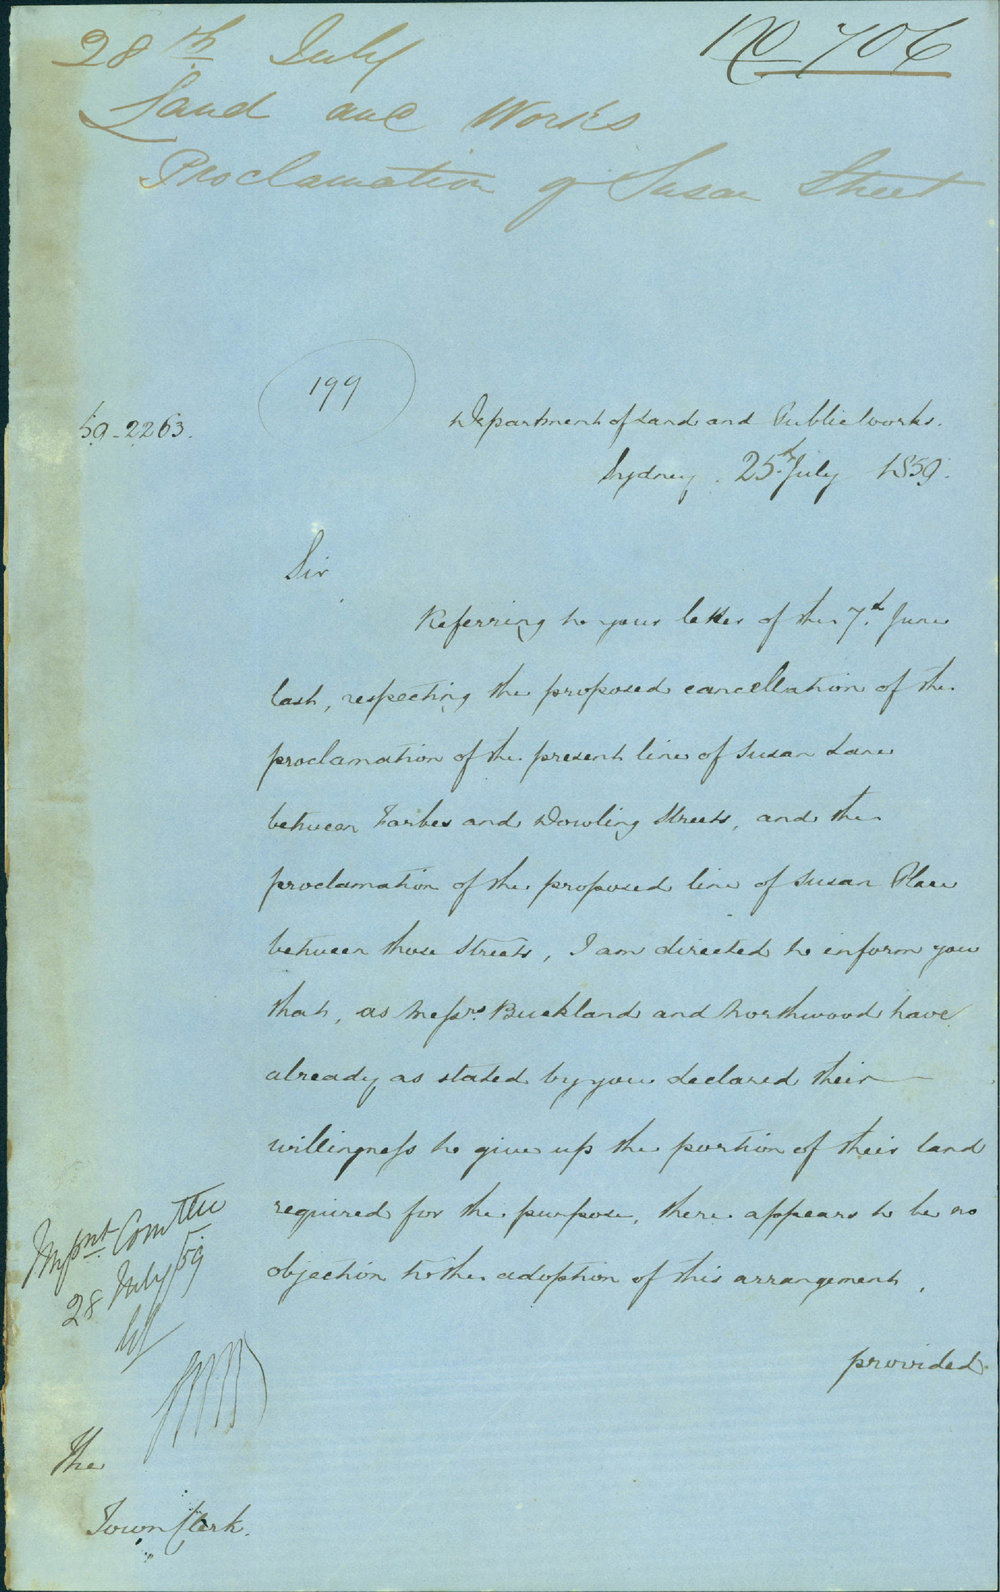 28th July
No 706
Land and Works
Proclamation of Susan Street
199
59-2263.
Department of Land and Public Works.
Sydney. 25th July 1859.
Sir
Referring to your letter of the 7th June
last, respecting the proposed cancellation of the
proclamation of the present line of Susan Lane
between Forbes and Dowling Streets, and the
proclamation of the proposed line of Susan Place
between those Streets, I am directed to inform you
that, as Messrs. Buckland and Northwood have
already as stated by you declared their
willingness to give up the portion of their land
required for the purpose, there appears to be no
objection to the adoption of this arrangement,
provided
Impnt. Comttee
28 July/59
The
Town Clerk.